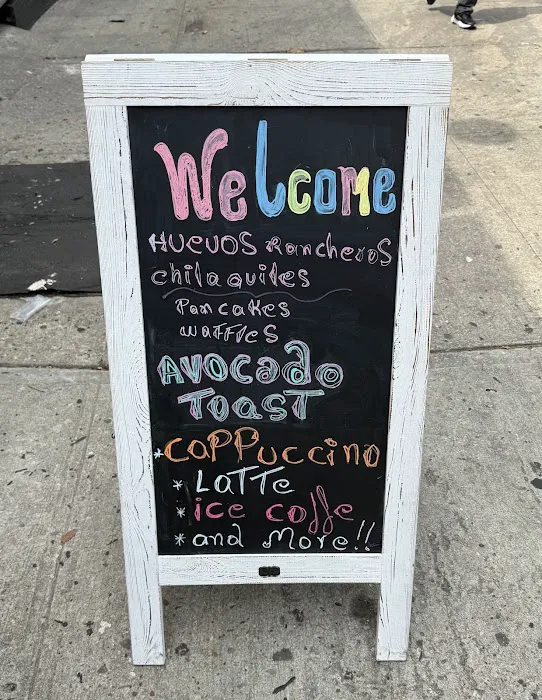 Welcome
HUEVOS RancheroS
chilaquiles
Pancakes
WAFFLES
AVOCADO
TOAST
*CAPPuccino
* LATTe
* ice coffe
* and More!!